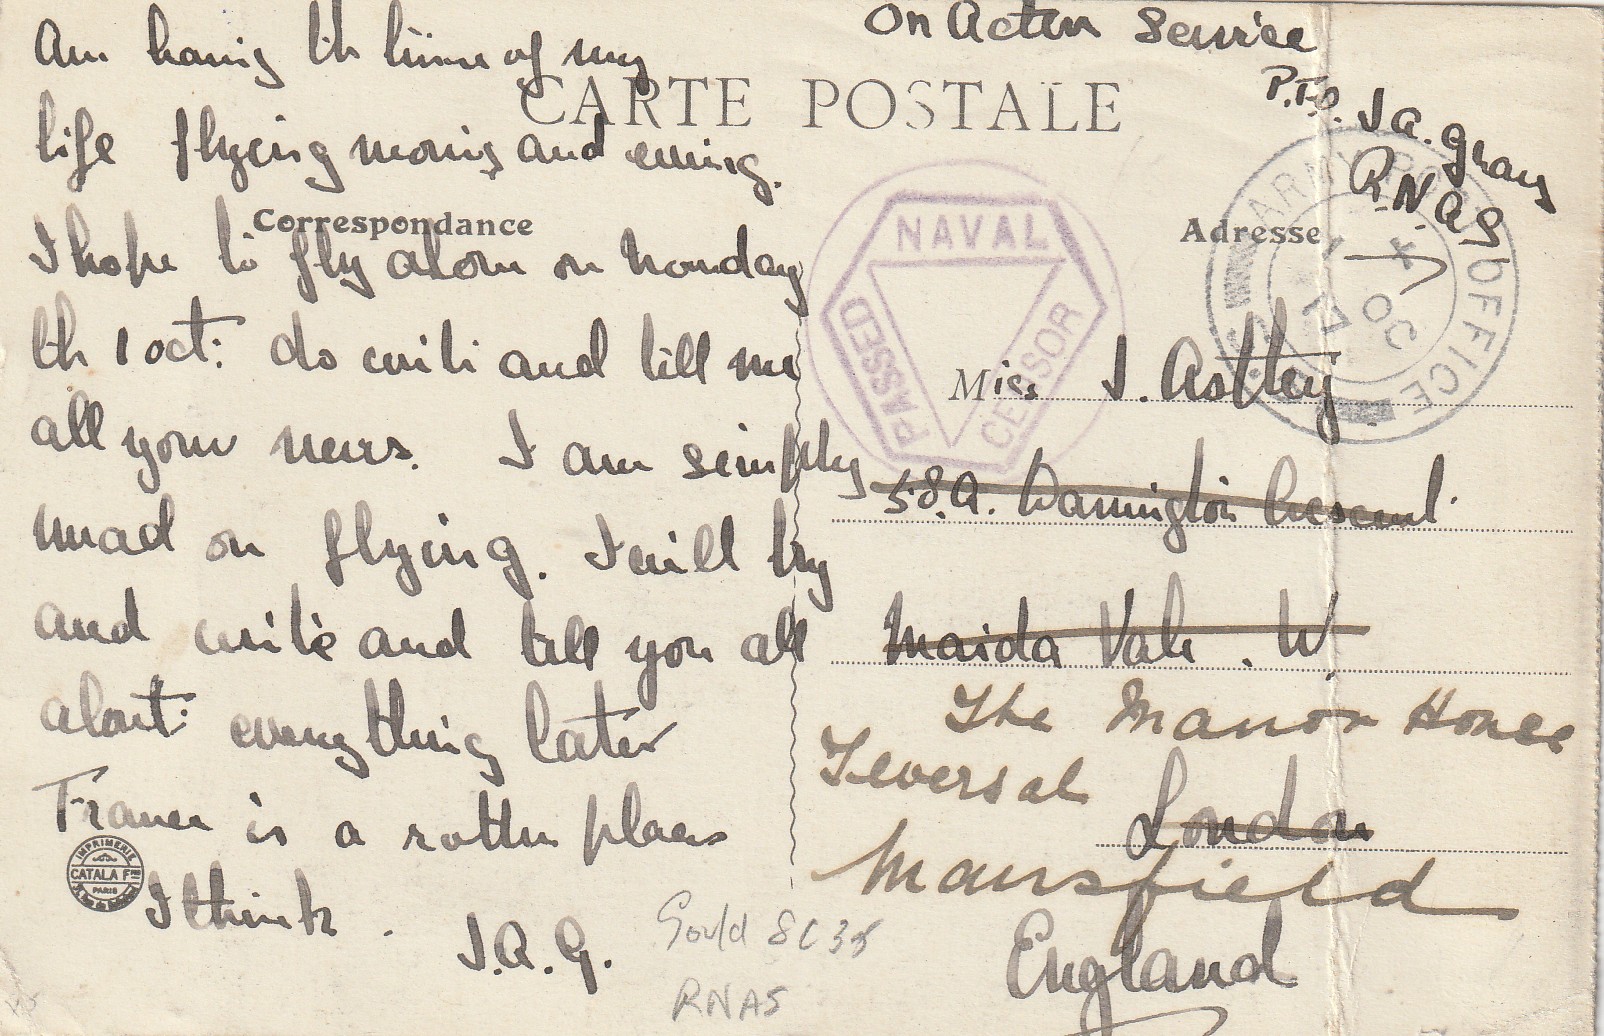 Am having the time of my
life flying morning and evening.
I hope to fly alone on Monday
the 1 Oct: do write and tell me
all your news. I am simply
mad on flying. I will try
and write and tell you all
about everything later
France is a rotten place
I think.
J.A.G.
On Active Service
P.T.O.
J A. Gray
R.N.A.S
CARTE POSTALE
Correspondance
Adresse
PASSED NAVAL CENSOR
ARMY POST OFFICE
1 OC 17
Miss J. Astley
58.A. Warrington Crescent.
Maida Vale. W.
The Manor House
Teversal
London
Mansfield
England
IMPRIMERIE
CATALA Fres
PARIS
Gould 8C35
RNAS